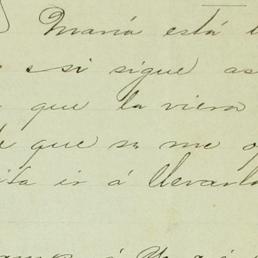 María está
si sigue as
que la viera
que su me op
ita ir á llevarla